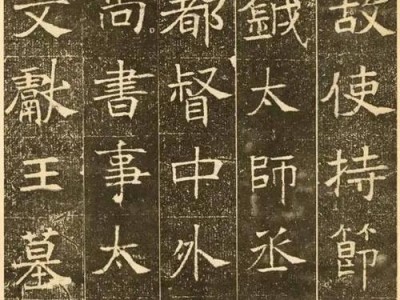 故使持節
鉞太師丞
都督中外
尚書事太
文獻王墓